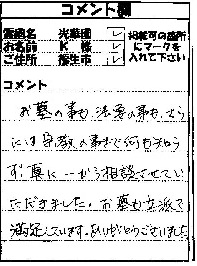 コメント欄
霊園名 光華園 ✓ 掲載可の箇所
お名前 K 様 ✓ にマークを
ご住所 桜生市 ✓ 入れて下さい
コメント
お墓の事も、法要の事も、さら
には宗教の事まで何も知ら
ず、真に一から相談させてい
ただきました。お墓も立派で
満足しています。ありがとうございました